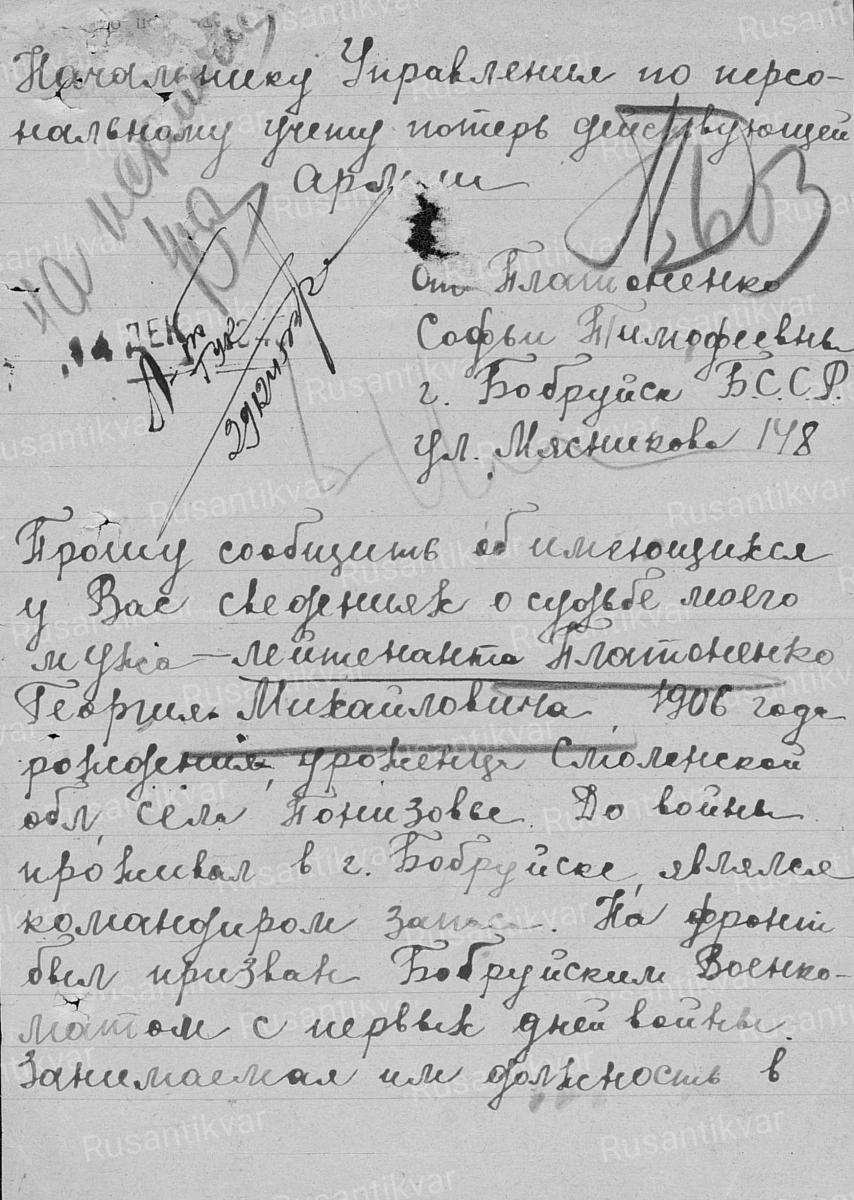 Начальнику Управления по персо-
нальному учету потерь действующей
Армии
на
2603
14 ДЕК
от Платоненко
Софьи Тимофеевны
г. Бобруйск Б.С.С.Р.
ул. Мясникова 148
Прошу сообщить об имеющихся
у Вас сведениях о судьбе моего
мужа – лейтенанта Платоненко
Георгия Михайловича, 1906 года
рождения, уроженца Смоленской
обл, села Понизовье. До войны
проживал в г. Бобруйске, являлся
командиром запаса. На фронт
был призван Бобруйским Военко-
матом с первых дней войны.
Занимаемая им должность в
Rusantikvar